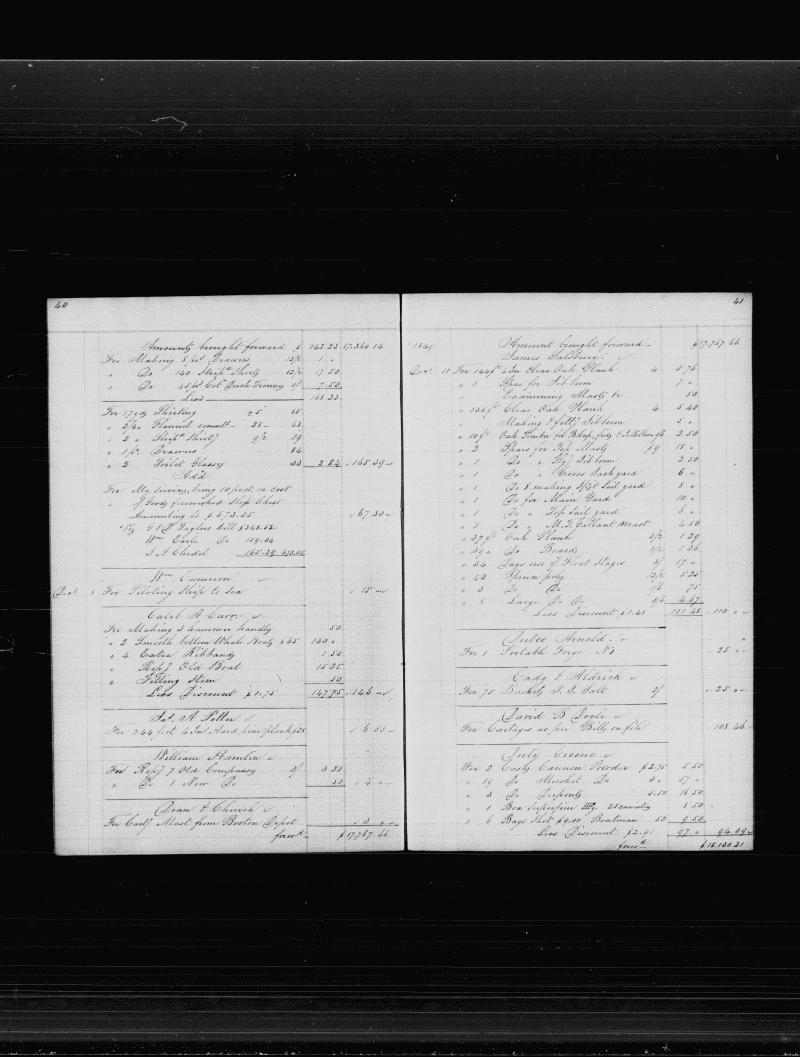 40
Amounts brought forward $ 142 23 17.360.14
For Making 8 prs Drawers 12/2 1 "
" Do 140 Strip'd Shirts 12/2 17 50
" Do 45 prs Cotn Duck Trousers 1/ 7 50
Less 168 23
For 17 yds Shirting 5 85
" 2 1/4 " Flannel remnt 28 63
" 2 " Strip'd Shirts 9/2 19
" 1 pr Drawers 84
" 2 Toilet Glasses 33 2 84 " 165.39 "
Add
For My Services, being 10 per ct. on cost
" of Goods furnished Slop Chest
Amounting to $ 673.05 " 67.30 "
Viz G & P Taylors bill $ 348.52
Wm Earle Do 159.04
J A Chedel 165.39 673.05
Wm Cameron
Dec 8 For Piloting Ship to Sea " 15 "
Caleb A Carr
For Making 2 hammer handles 50
" 2 Smooth bottom Whale Boats $65 130 "
" 4 Extra Ribbands 1 50
Repg Old Boat 15 25
" Filling Stem 50
Less Discount $1.75 147.75 " 146 "
Jas. A. Potter
For 344 feet 4 In Hard pine plank 6 53 "
William Hamlin
For Repg 7 Old Compasses 3/ 3 50
" Do 1 New Do 50 " 4 "
Dean & Church
For Cartg Mast from Boston Depot " 3 "
forwd $ 17.767.66
41
1849 Amount brought forward $17.767.66
James Salsbury
Dec 11 For 144 ft 4 In Clear Oak Plank 4 5 76
" 1 Spar for Jib boom 7 "
" Examining Masts &c 50
" 135 ft Clear Oak Plank 4 5 40
" Making & fittg Jibboom 5 "
" 10 ft Oak Timber for 2 50
" 2 Spars for Top Masts $9 18 "
" 1 Do " Flyg Jibboom 2 50
" 1 Do " Cross Jack yard 6 "
" 1 Do & making Sail yard 8 "
" 1 Do for Main Yard 10 "
" 1 Do " Top sail yard 6 "
" 1 Do " M. T. Gallant mast 4 50
" 37 ft Oak Plank 3/2 1 29
" 39 " Do Boards 3/2 1 36
" 34 Days use of Float Stages 3/ 17 "
" 42 Spruce poles 12/2 5 25
" 3 Do Do 75
" 8 Large Do Do 4.67
Less Discount $1.48 111 48 " 110 "
Arnold
For 1 Portable Forge No " 25 "
Cady & Aldrich
For 75 Bushels T. I. Salt 2/ " 25 "
David B Doyle
For Cartages as per Bills on file " 108 46
Greene
For 2 Casks Cannon Powder $2.75 5 50
" 19 Do Musket Do 3 " 57 "
" 3 Do Duponts 5.50 16 50
" 1 Box Superfine 25 canistrs 8 50
" 6 Bags Shot $9.00 Boatman 50 9 50
Less Discount $2.91 97 " 94 09
forwd $ 18.130.21